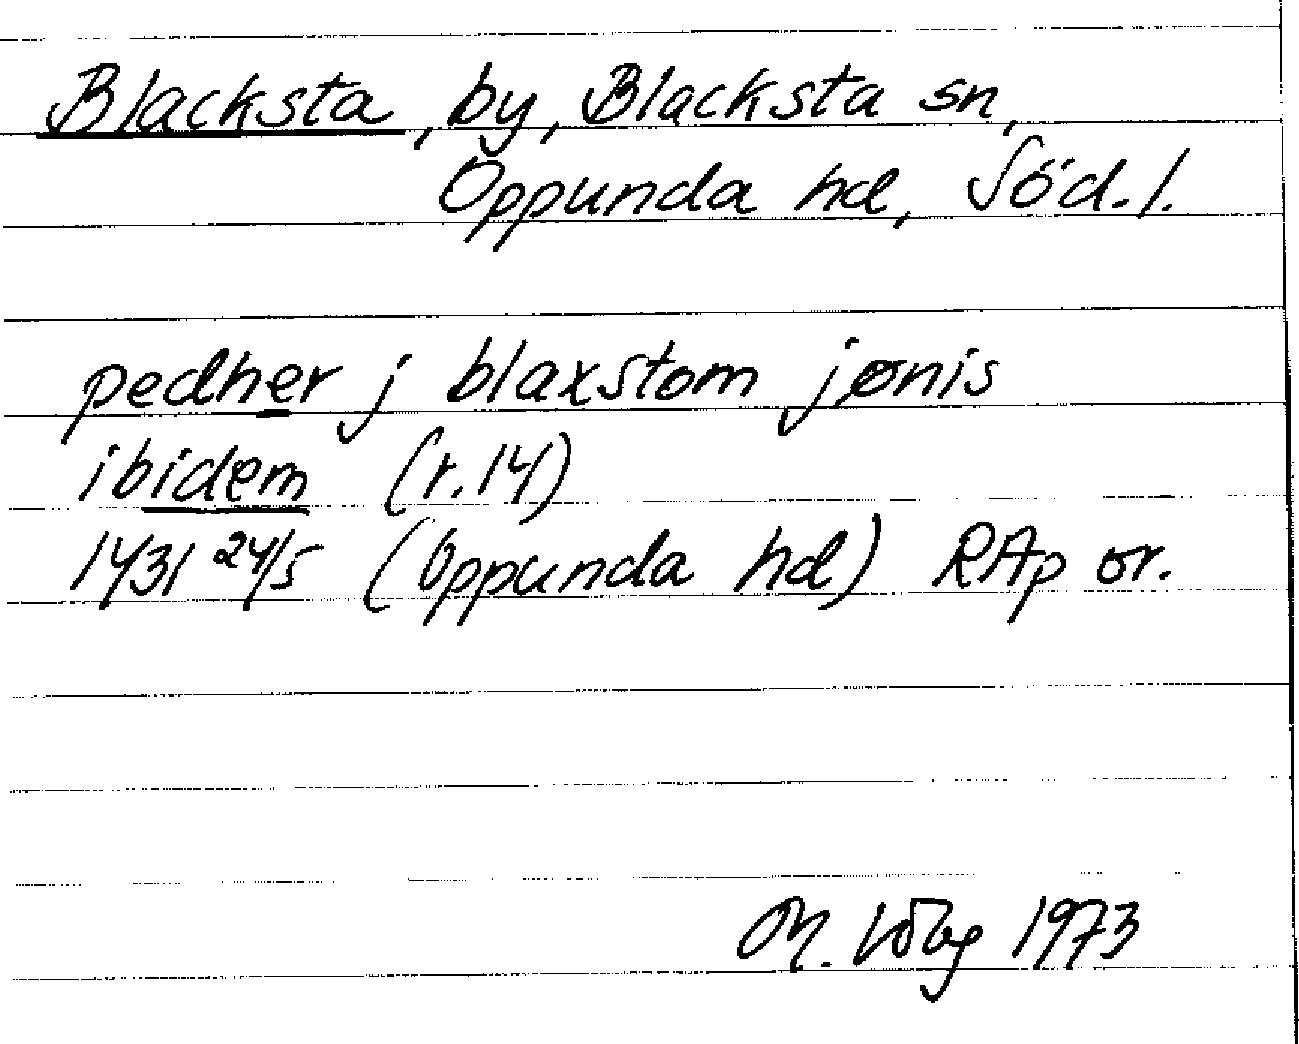 Blacksta, by, Blacksta sn,
Oppunda hd, Söd.l.
pedher j blaxstom jønis
ibidem (r.14)
1431 24/5 (Oppunda hd) RAp or.
M. 1973